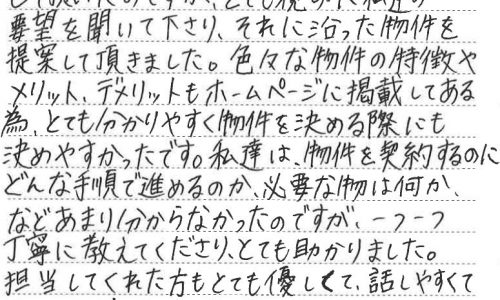 要望を聞いて下さり、それに沿った物件を
提案して頂きました。色々な物件の特徴や
メリット、デメリットもホームページに掲載してある
為、とても分かりやすく物件を決める際にも
決めやすかったです。私達は、物件を契約するのに
どんな手順で進めるのか、必要な物は何か、
などあまり分からなかったのですが、一つ一つ
丁寧に教えてくださり、とても助かりました。
担当してくれた方もとても優しくて、話しやすくて